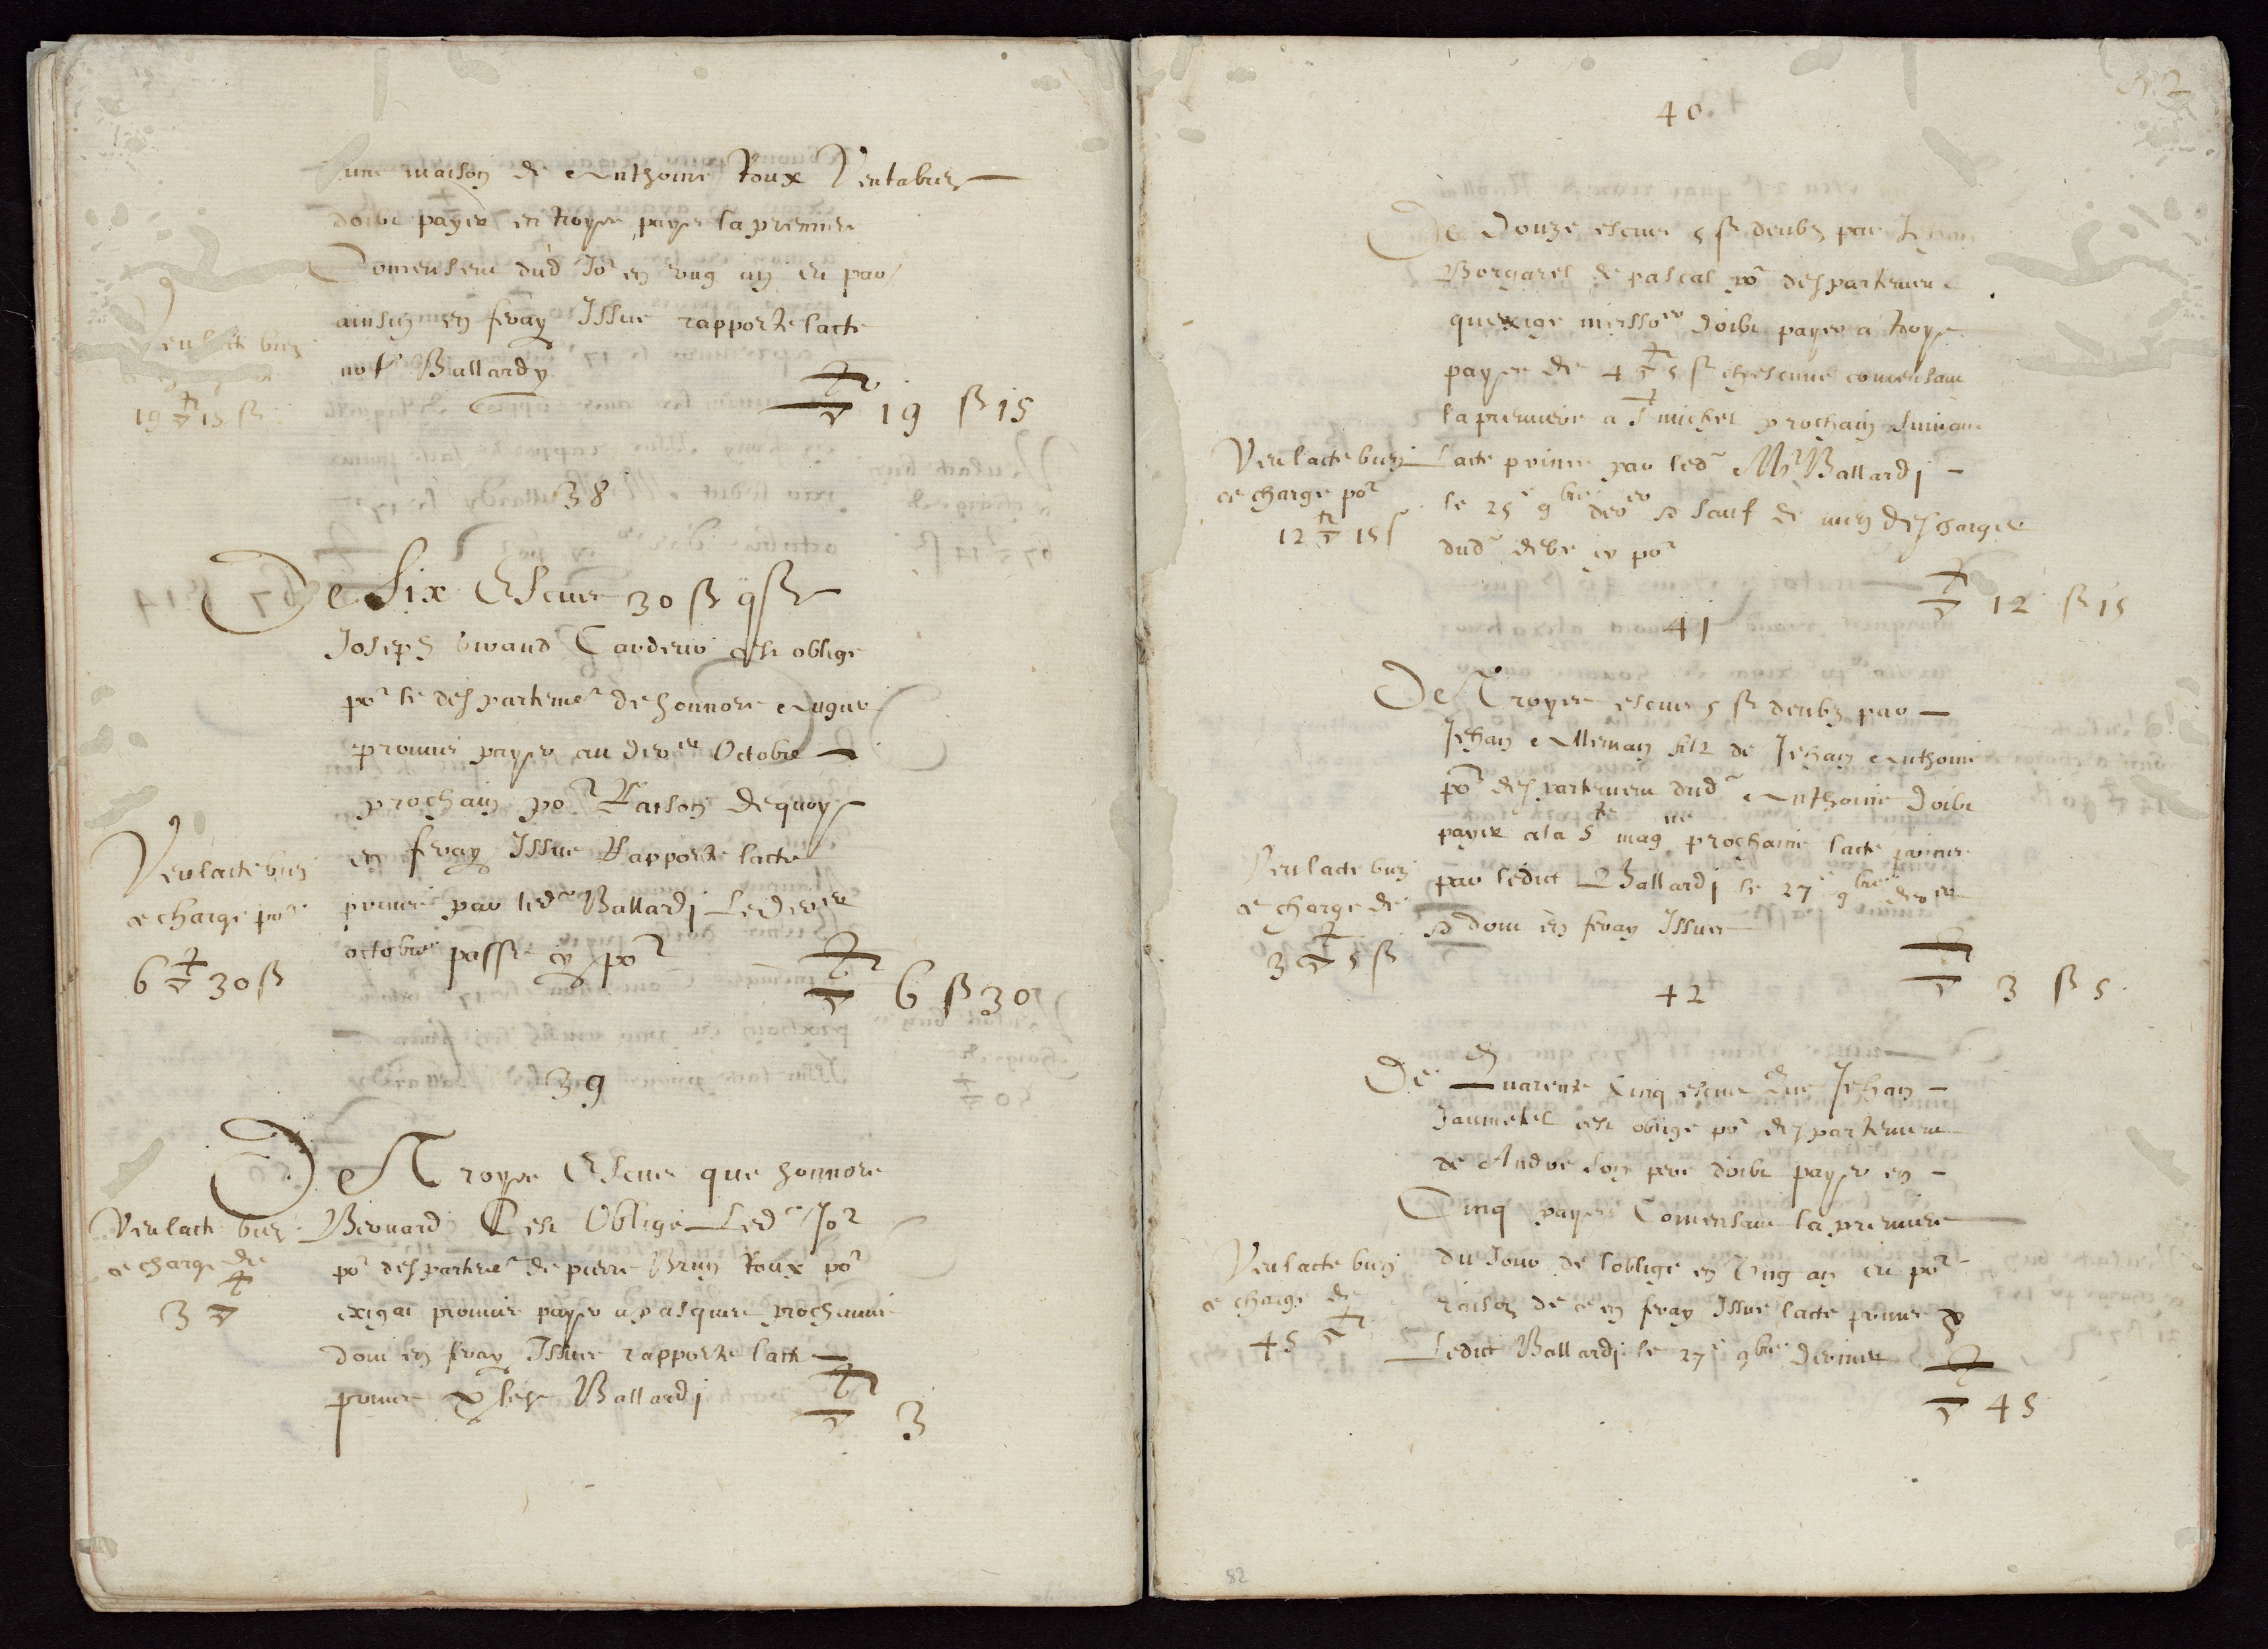 une maison de Anthoine Roux Ventabren
doibt payer en troys payes la premiere
Comensent dud Jor en vng an et par
ainsin en feray Issue rapporte lacte
not Ballardy
▽ 19 ß 15
Veu lacte bien
19 ▽ 15 ß
38
De Six Escus 30 ß q
Joseph Cardeur est oblige
por le despartemt de honnore Augier
promis payer au dernier Octobre
prochain por Raison dequoy
en feray Issue Rapporte lacte
prins par led Ballardi Le dernier
octobre passe cy por
▽ 6 ß 30
Veu lacte bien
ce charge por
6 ▽ 30 ß
39
De Troys Escus que honnore
Bernard Cest Oblige Led Jor
por despartemt de pierre Brun Roux por
exigat promis payer a pasques prochaine
dont en feray Issue rapporte lacte
prins p Ballardi
▽ 3
Veu lacte bien
ce charge de
3 ▽
32
40
De Douze escus 5 ß deubz par Jehan
Borgarel de pascal por despartement
quexige messor doibt payer a troys
payes de 4 ▽ 5 ß chescune comensant
la premiere a St michel prochain suivant
Lacte prins par led Mr Ballardi
le 25e 9bre der sauf de men descharger
dud debe cy por
▽ 12 ß 15
Veu lacte bien
ce charge por
12 ▽ 15 ß
41
De Troys escus 5 ß deubz par
Jehan filz de Jehan Anthoine
por despartement dud Anthoine doibt
payer a la Ste mag ne prochaine lacte prins
par ledict Ballardi le 27e 9bre der
dont en feray Issue
▽ 3 ß 5
Veu lacte bien
ce charge de
3 ▽ 5 ß
42
De Quarente Cinq escus Que Jehan
Jaumetel cest oblige por despartement
de Andre son pere doibt payer en
Cinq payes Comensant la premiere
du Jour de loblige en Vng an et por
raison de ce en feray Issue lacte prins p
Ledict Ballardi le 27e 9bre dernier
▽ 45
Veu lacte bien
ce charge de
45 ▽
82